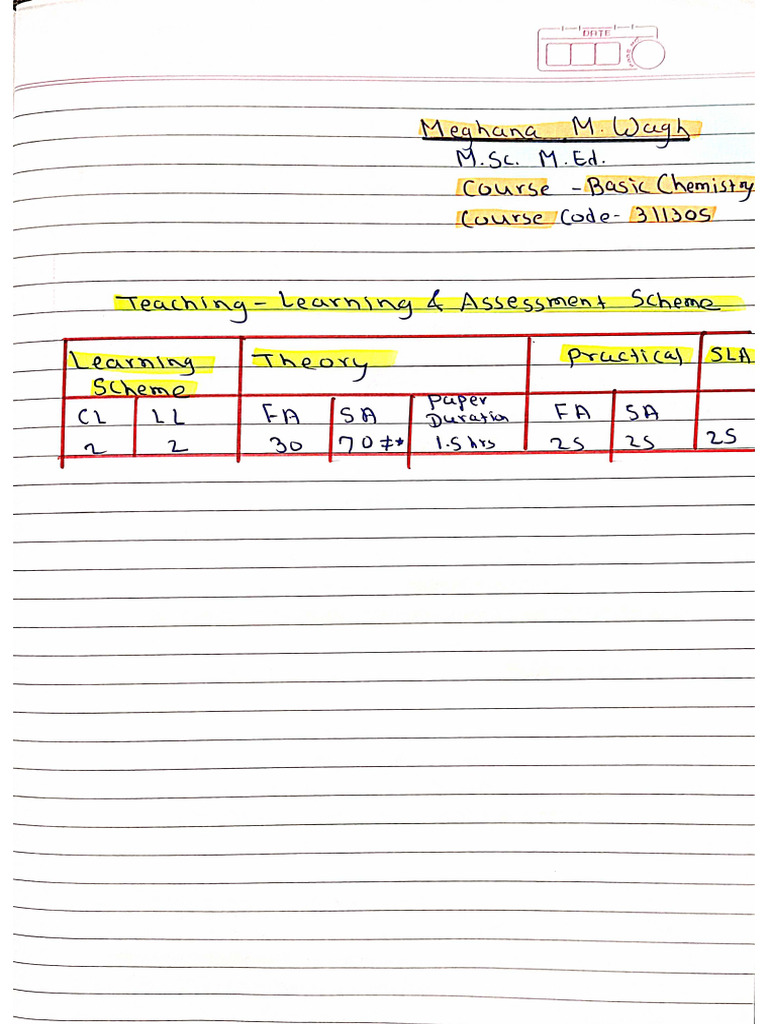 DATE
Meghana M. Wagh
M.Sc. M.Ed.
Course - Basic Chemistry
Course Code- 311305
Teaching - Learning & Assessment Scheme
Learning Scheme Theory Practical SLA
CL LL FA SA Paper Duration FA SA
2 2 30 70 #* 1.5 hrs 25 25 25